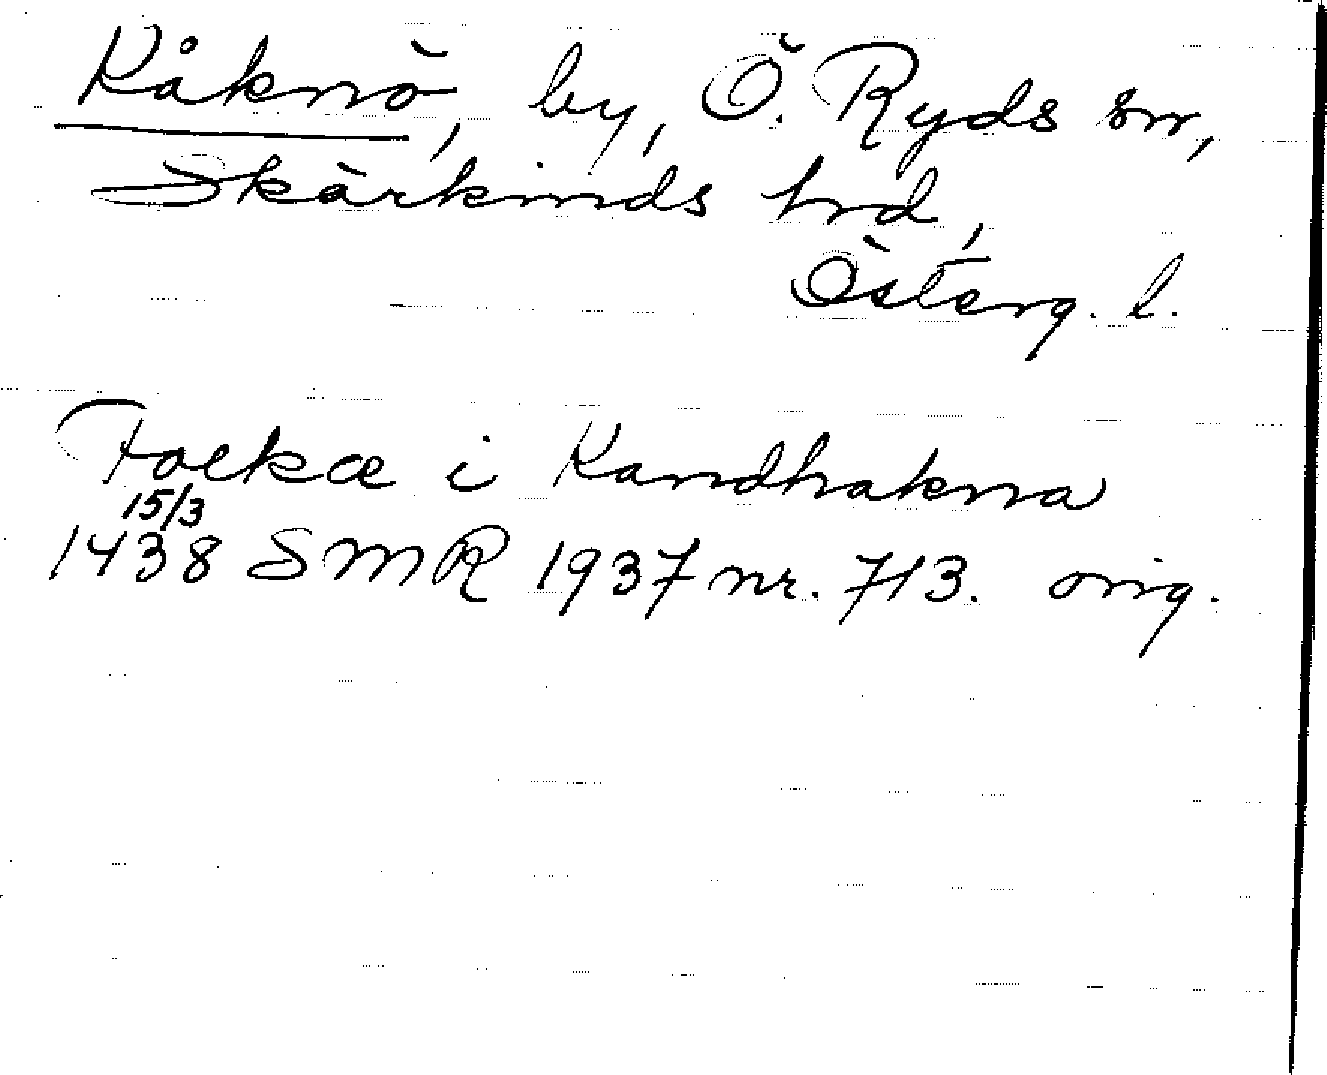 Råknö, by, Ö. Ryds sn,
Skärkinds hrd,
Österg. l.
Folkæ i Randhakna
15/3
1438 SMR 1937 nr. 713. orig.